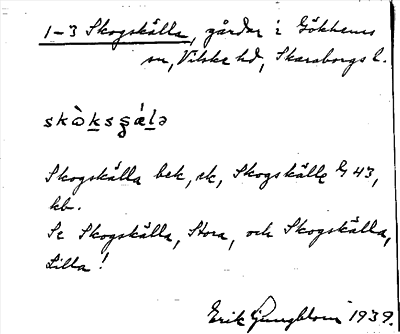 1-3 Skogskälla, gårdar i Gökhems
sn, Vilske hd, Skaraborgs l.
Skogskälla bek, sk, Skogskälle G 43,
kb.
Se Skogskälla, Stora, och Skogskälla,
Lilla!
Erik Ljungblom 1939.